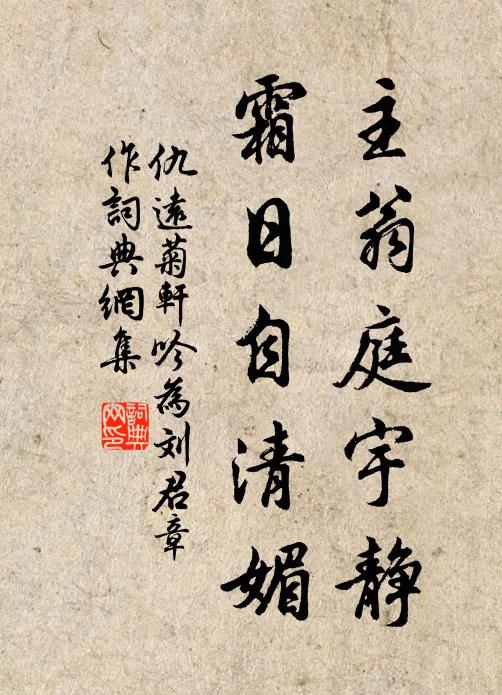 主翁庭宇静
霜日自清媚
仇遠菊軒吟為刘君章
作詞典網集
詞典網印